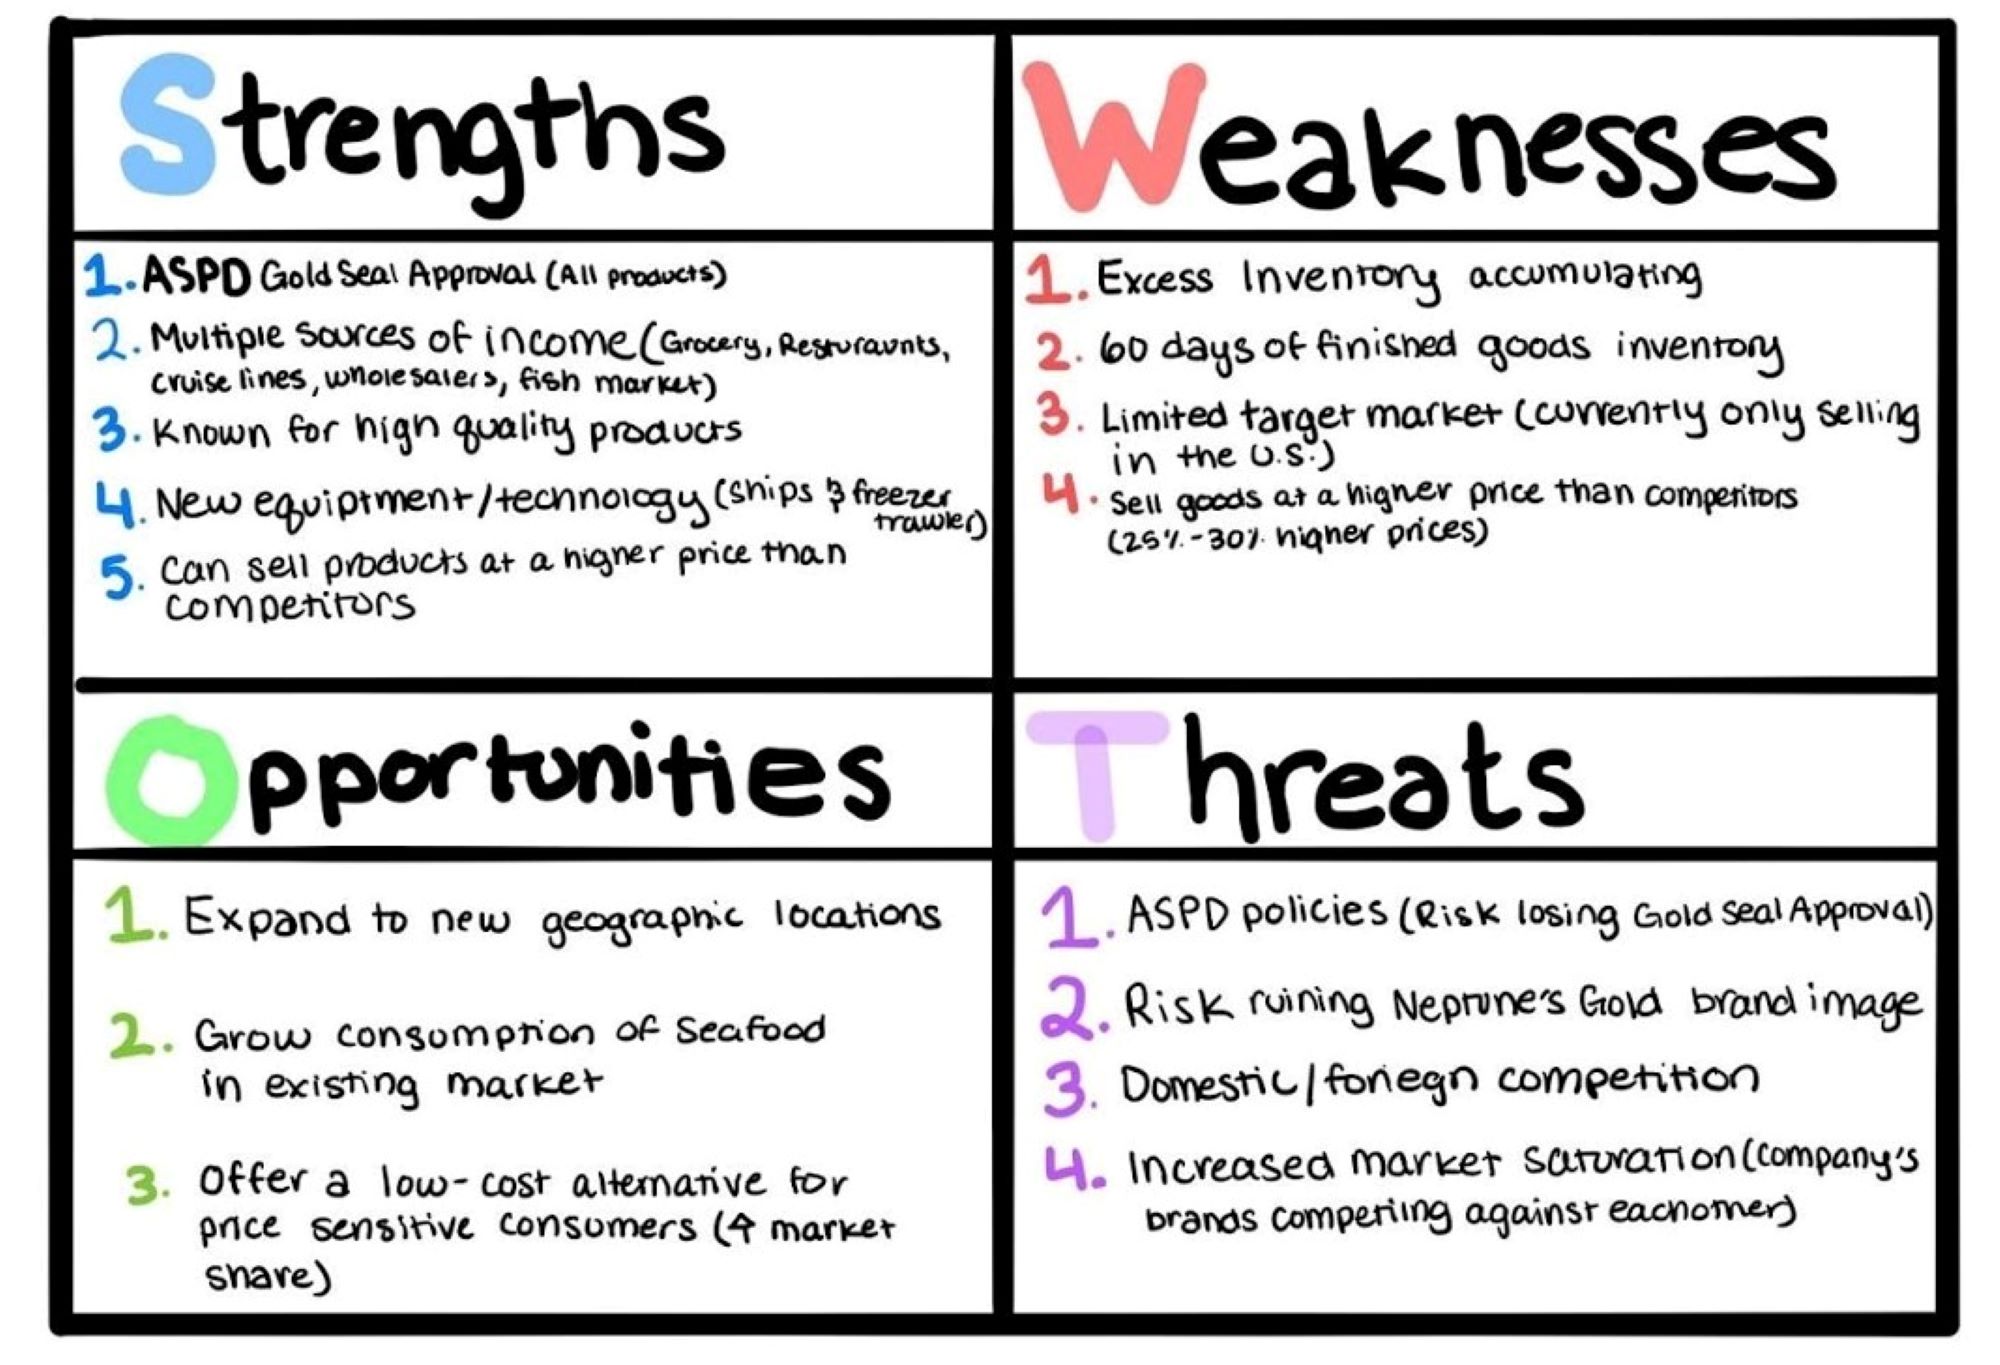 Strengths
1. ASPD Gold Seal Approval (All products)
2. Multiple Sources of income (Grocery, Resturaunts,
cruise lines, wholesalers, fish market)
3. Known for high quality products
4. New equiptment/technology (ships & freezer
trawler)
5. Can sell products at a higher price than
competitors
Weaknesses
1. Excess Inventory accumulating
2. 60 days of finished goods inventory
3. Limited target market (currently only selling
in the U.S.)
4. Sell goods at a higher price than competitors
(25%-30% higher prices)
Opportunities
1. Expand to new geographic locations
2. Grow consumption of Seafood
in existing market
3. Offer a low-cost alternative for
price sensitive consumers (↑ market
share)
Threats
1. ASPD policies (Risk losing Gold Seal Approval)
2. Risk ruining Neptune's Gold brand image
3. Domestic/foriegn competition
4. Increased market saturation (company's
brands competiing against eachother)